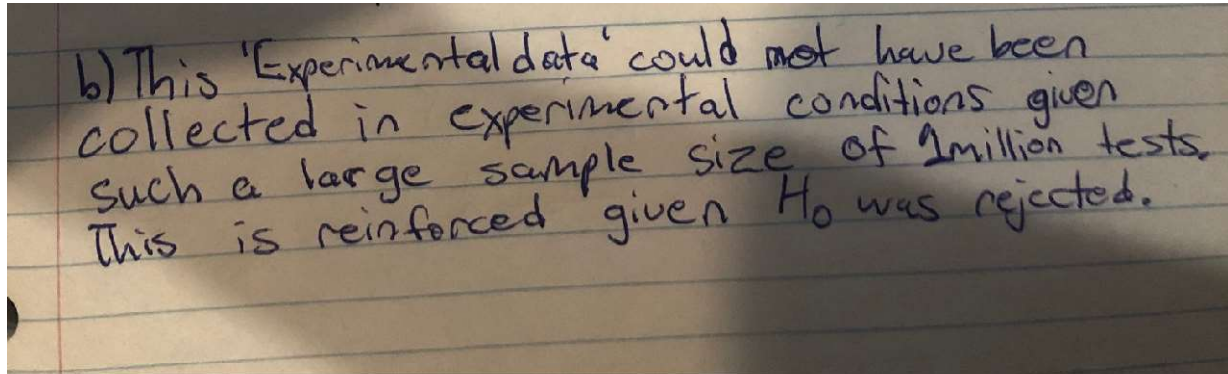 b) This 'Experimental data' could not have been
collected in experimental conditions given
such a large sample size of 1million tests.
This is reinforced given H₀ was rejected.